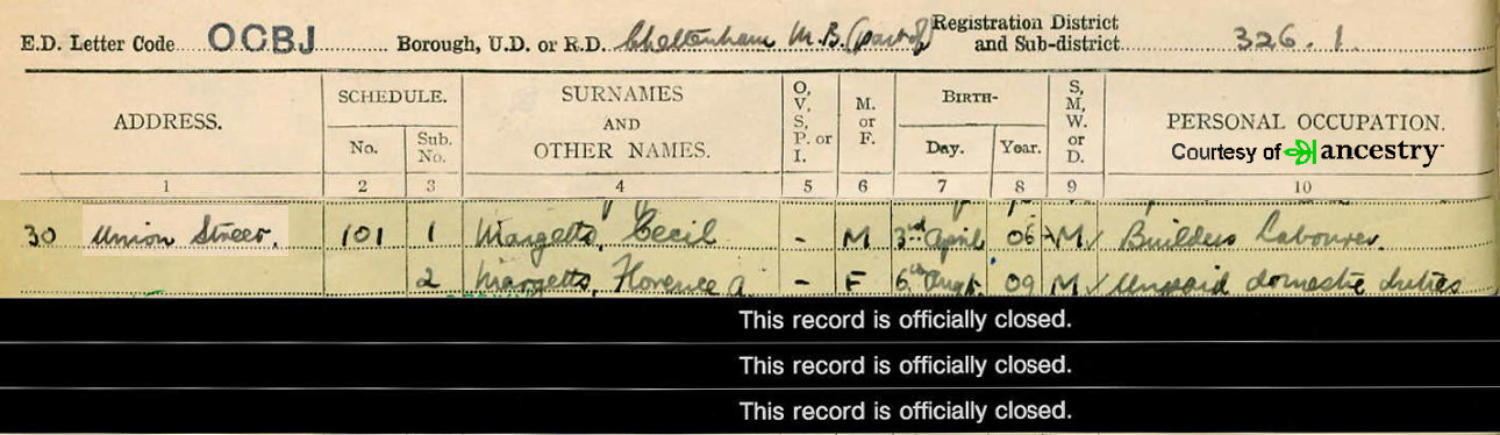 E.D. Letter Code OCBJ Borough, U.D. or R.D. Cheltenham M.B. (part of) Registration District and Sub-district 326. 1.
ADDRESS.
SCHEDULE.
No.
Sub. No.
SURNAMES AND OTHER NAMES.
O, V, S, P. or I.
M. or F.
BIRTH-
Day.
Year.
S, M, W. or D.
PERSONAL OCCUPATION.
Courtesy of ancestry
1 2 3 4 5 6 7 8 9 10
30 Union Street, 101 1 Margetts, Cecil - M 3rd April 06 M ✓ Builders Labourer.
2 Margetts, Florence A. - F 6th Augt. 09 M ✓ Unpaid domestic duties
This record is officially closed.
This record is officially closed.
This record is officially closed.